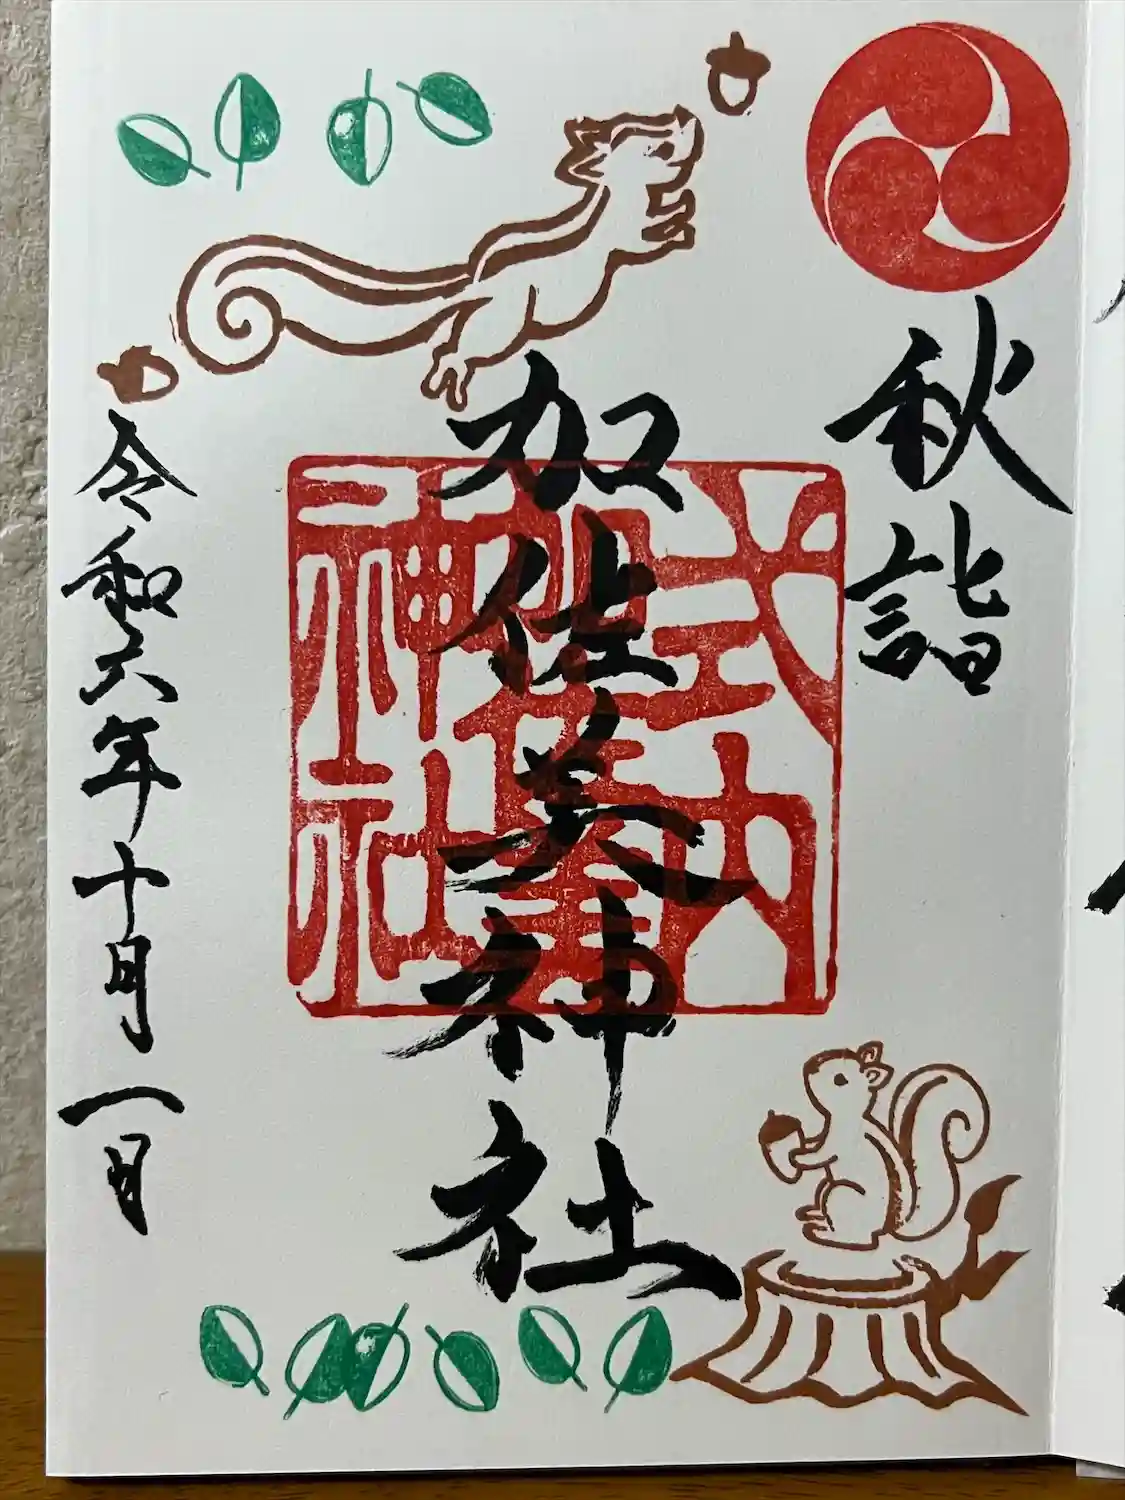 秋詣
加佐美神社
式内
加佐美
神社
令和六年十月一日